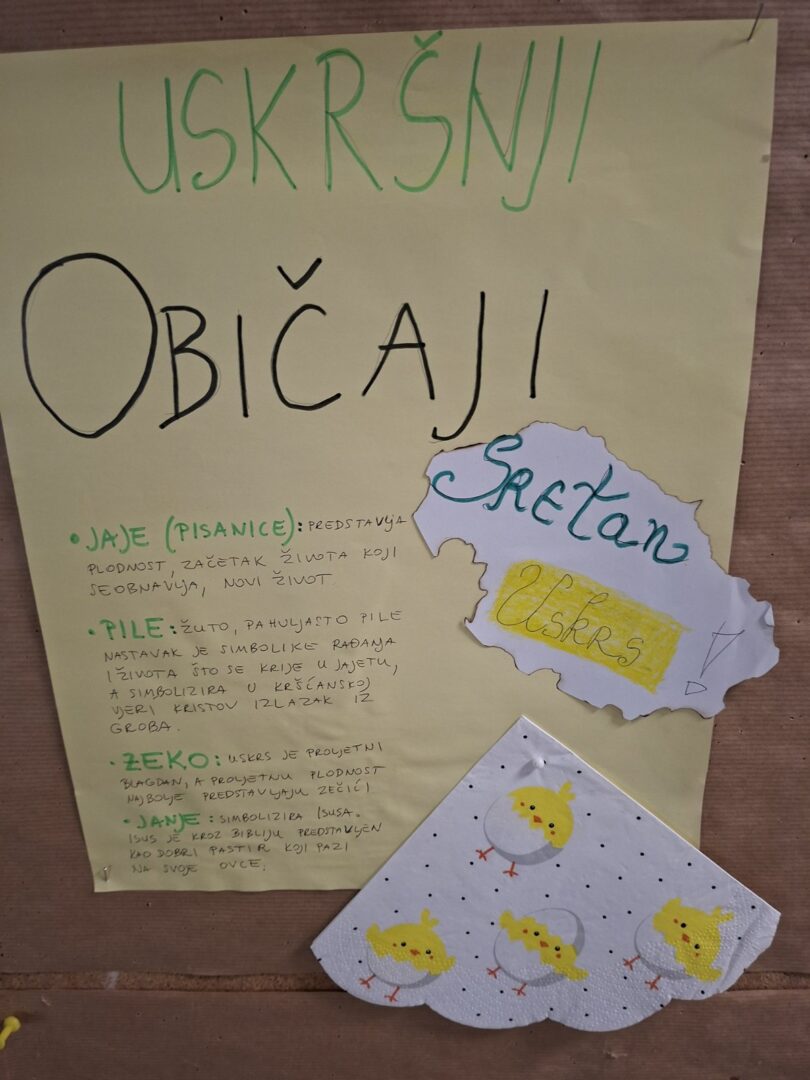 USKRŠNJI
OBIČAJI
• JAJE (PISANICE): PREDSTAVLJA
PLODNOST, ZAČETAK ŽIVOTA KOJI
SE OBNAVLJA, NOVI ŽIVOT.
• PILE: ŽUTO, PAHULJASTO PILE
NASTAVAK JE SIMBOLIKE RAĐANJA
I ŽIVOTA ŠTO SE KRIJE U JAJETU,
A SIMBOLIZIRA U KRŠĆANSKOJ
VJERI KRISTOV IZLAZAK IZ
GROBA.
• ZEKO: USKRS JE PROLJETNI
BLAGDAN, A PROLJETNU PLODNOST
NAJBOLJE PREDSTAVLJAJU ZEČIĆI
• JANJE: SIMBOLIZIRA ISUSA.
ISUS JE KROZ BIBLIJU PREDSTAVLJEN
KAO DOBRI PASTIR KOJI PAZI
NA SVOJE OVCE.
SRETAN
USKRS !